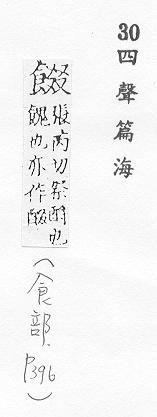 30四聲篇海
餟
張芮切祭酹也
餽也亦作醊
(食部.P396)